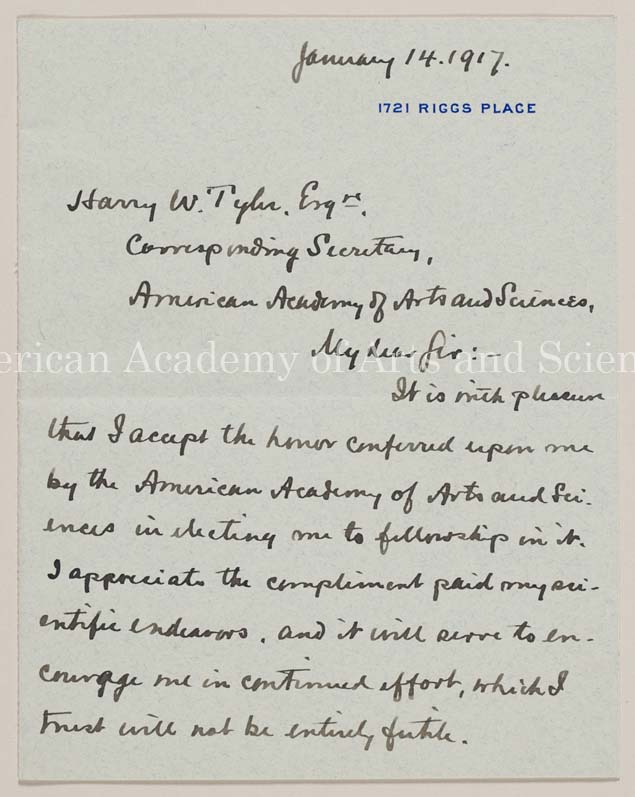 January 14. 1917.
1721 RIGGS PLACE
Harry W. Tyler. Esqre.
Corresponding Secretary,
American Academy of Arts and Sciences,
My dear Sir:-
erican Academy of Arts and Scien
It is with pleasure
that I accept the honor conferred upon me
by the American Academy of Arts and Sci-
ences in electing me to fellowship in it.
I appreciate the compliment paid my sci-
entific endeavors, and it will serve to en-
courage me in continued effort, which I
trust will not be entirely futile.